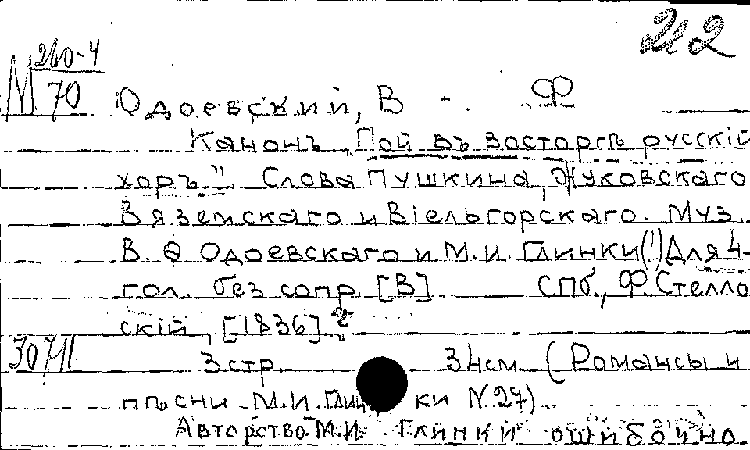 212
М 260-4
70
Одоевский, В - . Ф
Канонъ „Пой въ восторгѣ русскій
хоръ". Слова Пушкина, Жуковскаго
Вяземскаго и Віельгорскаго. Муз.
В. Ѳ Одоевскаго и М.И. Глинки(!) Для 4-
гол. без сопр. [В] СПб., Ф. Стелло
скій, [1836].
3 стр. 34см. (Романсы и
пѣсни М.И. Глинки N.27)
Авторство М.И. Глинки ошибочно.